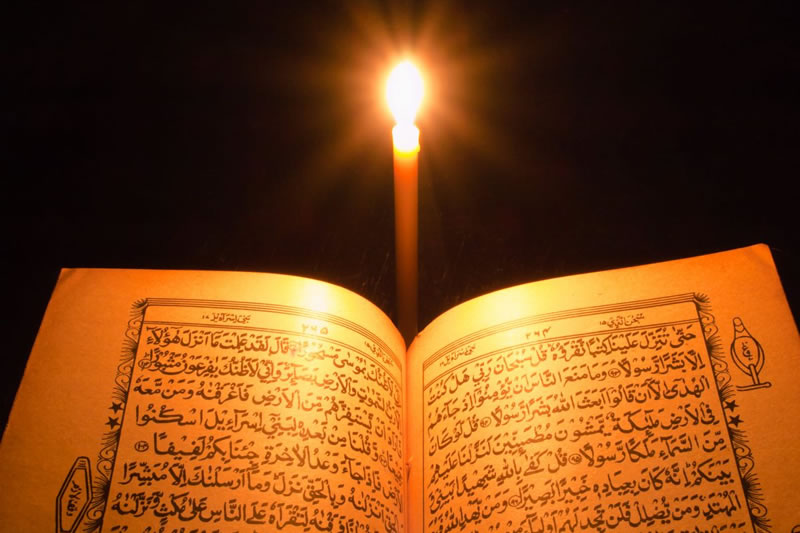 سبحن الذی ١٥
٢٦٤
بنی اسرآءیل ١٧
حَتّٰى تُنَزِّلَ عَلَيْنَا كِتٰبًا نَّقْرَؤُهٗ قُلْ سُبْحَانَ رَبِّيْ هَلْ كُنْتُ
اِلَّا بَشَرًا رَّسُوْلًا وَمَا مَنَعَ النَّاسَ اَنْ يُّؤْمِنُوْٓا اِذْ جَآءَهُمُ
الْهُدٰٓى اِلَّآ اَنْ قَالُوْٓا اَبَعَثَ اللّٰهُ بَشَرًا رَّسُوْلًا قُلْ لَّوْ كَانَ
فِي الْاَرْضِ مَلٰٓئِكَةٌ يَّمْشُوْنَ مُطْمَئِنِّيْنَ لَنَزَّلْنَا عَلَيْهِمْ
مِّنَ السَّمَآءِ مَلَكًا رَّسُوْلًا قُلْ كَفٰى بِاللّٰهِ شَهِيْدًا بَيْنِيْ وَ
بَيْنَكُمْ اِنَّهٗ كَانَ بِعِبَادِهٖ خَبِيْرًا بَصِيْرًا وَمَنْ يَّهْدِ اللّٰهُ
الْمُهْتَدِ وَمَنْ يُّضْلِلْ فَلَنْ تَجِدَ لَهُمْ اَوْلِيَآءَ
٢٦٥
بنی اسرآءیل ١٧
لَاَظُنُّكَ يٰمُوْسٰى مَسْحُوْرًا قَالَ لَقَدْ عَلِمْتَ مَآ اَنْزَلَ هٰٓؤُلَآءِ
السَّمٰوٰتِ وَالْاَرْضِ بَصَآئِرَ وَاِنِّيْ لَاَظُنُّكَ يٰفِرْعَوْنُ مَثْبُوْرًا
اَنْ يَّسْتَفِزَّهُمْ مِّنَ الْاَرْضِ فَاَغْرَقْنٰهُ وَمَنْ مَّعَهٗ
وَّقُلْنَا مِنْ بَعْدِهٖ لِبَنِيْٓ اِسْرَآءِيْلَ اسْكُنُوا
الْاَرْضَ فَاِذَا جَآءَ وَعْدُ الْاٰخِرَةِ جِئْنَا بِكُمْ لَفِيْفًا
اَنْزَلْنٰهُ وَبِالْحَقِّ نَزَلَ وَمَآ اَرْسَلْنٰكَ اِلَّا مُبَشِّرًا
فَرَقْنٰهُ لِتَقْرَاَهٗ عَلَى النَّاسِ عَلٰى مُكْثٍ وَّنَزَّلْنٰهُ